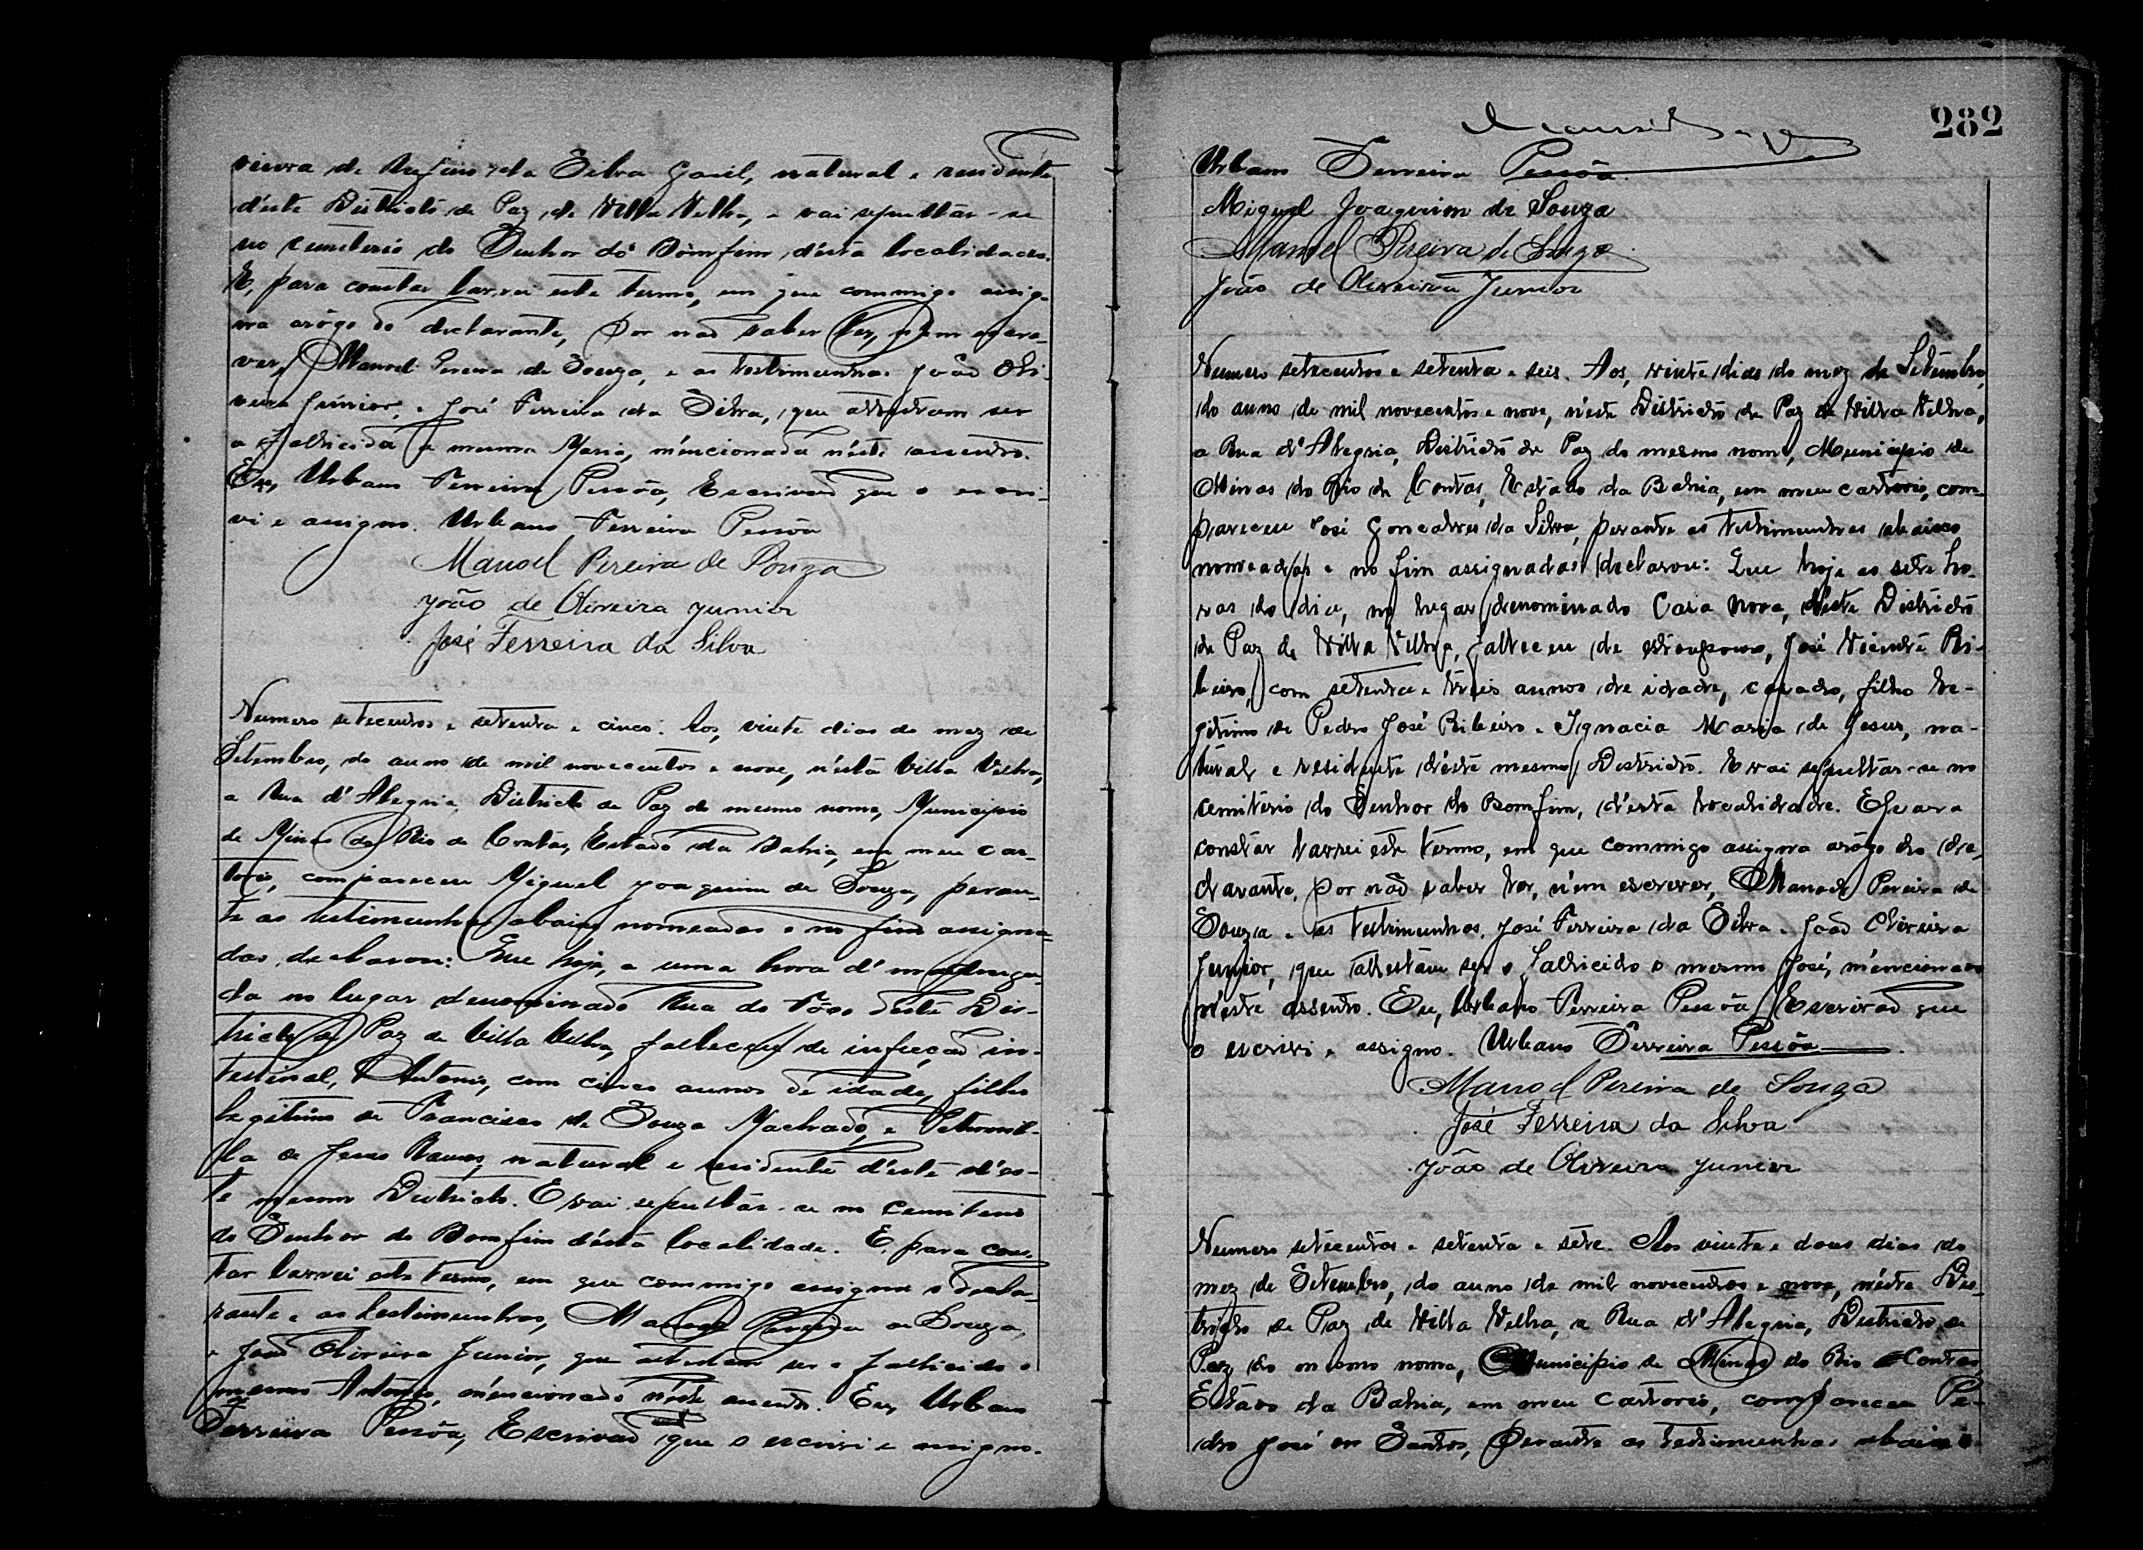 viuva de Rufino da Silva Gazil, natural e residente
d'este Districto de Paz de Villa Velha, e vai sepultar-se
no cemiterio do Senhor do Bomfim, d'esta localidade.
E, para constar lavrei este termo, em que commigo assig-
na arôgo do declarante, por não saber ler, nem escre-
ver, Manoel Pereira de Souza, e as testimunhas João Oli-
veira Junior, e José Ferreira da Silva, que attestam ser
a fallicida a mesma Maria, mencionada n'este assento.
Eu, Urbano Ferreira Pessôa, Escrivão que o escri-
vi e assigno. Urbano Ferreira Pessôa
Manoel Pereira de Souza
João de Oliveira Junior
José Ferreira da Silva
Numero setecentos e setenta e cinco. Aos, vinte dias do mez de
Setembro, do anno de mil novecentos e nove, n'esta Villa Velha,
a Rua d'Alegria, Districto de Paz do mesmo nome, Municipio
de Minas do Rio de Contas, Estado da Bahia, em meu car-
torio, compareceu Miguel Joaquim de Souza, peran-
te as testimunhas abaixo nomeadas e no fim assigna-
das, declarou: Que hoje, a uma hora d' madruga-
da no lugar denominado Rua do Fôgo deste Dis-
tricto de Paz de Villa Velha, falleceu de infecção in-
testinal, Antonio, com cinco annos de idade, filho
legitimo de Francisco de Souza Machado, e Petronil-
la de Jesus natural e residente d'este d'es-
te mesmo Districto. E vai sepultar-se no Cemiterio
do Senhor do Bomfim d'esta localidade. E, para cons-
tar lavrei este termo, em que commigo assigna o decla-
rante e as testimunhas, Manoel Pereira de Souza,
e João Oliveira Junior, que attestam ser o fallicido o
mesmo Antonio, mencionado n'este assento. Eu, Urbano
Ferreira Pessôa, Escrivão que o escrivi e assigno.
282
Urbano Ferreira Pessôa
Miguel Joaquim de Souza
Manoel Pereira de Souza
João de Oliveira Junior
Numero setecentos e setenta e seis. Aos, vinte dias do mez de Setembro,
do anno de mil novecentos e nove, n'este Districto de Paz de Villa Velha,
a Rua d'Alegria, Districto de Paz do mesmo nome, Municipio de
Minas do Rio de Contas, Estado da Bahia, em meu cartorio, com-
pareceu José Goncalves da Silva, perante as testimunhas abaixo
nomeadas e no fim assignadas declarou: Que hoje as sete ho-
ras do dia, no lugar denominado Casa Nova, d'este Districto
de Paz de Villa Velha, falleceu de estoupouro, José Vicente Ri-
beiro, com setenta e treis annos de idade, casado, filho le-
gitimo de Pedro José Ribeiro e Ignacia Maria de Jesus, na-
tural e residente d'este mesmo Districto. E vai sepultar-se no
cemiterio do Senhor do Bomfim, d'esta localidade. E para
constar lavrei este termo, em que commigo assigna arôgo do de-
clarante, por não saber ler, n'em escrever, Manoel Pereira de
Souza e as testimunhas, José Ferreira da Silva e João Oliveira
Junior, que attestam ser o fallicido o mesmo José, mencionado
n'este assento. Eu, Urbano Ferreira Pessôa Escrivão que
o escrivi e assigno. Urbano Ferreira Pessôa
Manoel Pereira de Souza
José Ferreira da Silva
João de Oliveira Junior
Numero setecentos e setenta e sete. Aos vinte e dous dias do
mez de Setembro, do anno de mil novecentos e nove, n'este Dis-
tricto de Paz de Villa Velha, a Rua d'Alegria, Districto de
Paz do mesmo nome, Municipio de Minas do Rio de Contas,
Estado da Bahia, em meu cartorio, compareceu Pe-
dro José os Santos, perante as testimunhas abaixo